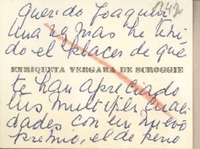 1242
Querido Joaquín
Una vez más he teni
do el placer de qué
ENRIQUETA VERGARA DE SCROGGIE
te han apreciado
tus multiples cuali
dades con un nuevo
premio, el de